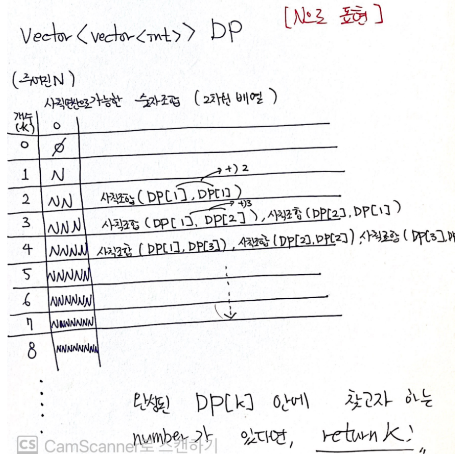 [N으로 표현]
Vector<vector<int>> DP
(주어진 N)
사칙연산으로 가능한 숫자조합 (2차원 배열)
개수
(K) 0
0 ∅
1 N
+) 2
2 NN 사칙조합(DP[1], DP[1])
+) 3
3 NNN 사칙조합(DP[1], DP[2]), 사칙조합(DP[2], DP[1])
4 NNNN 사칙조합(DP[1], DP[3]), 사칙조합(DP[2], DP[2]), 사칙조합(DP[3],
5 NNNNN
6 NNNNNN
7 NNNNNNN
8 NNNNNNNN
완성된 DP[k] 안에 찾고자 하는
number가 있다면, return K;
CS CamScanner로 스캔하기